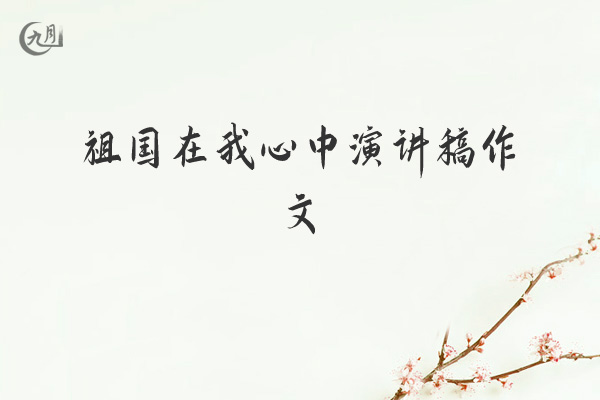 九月
祖国在我心中演讲稿作
文